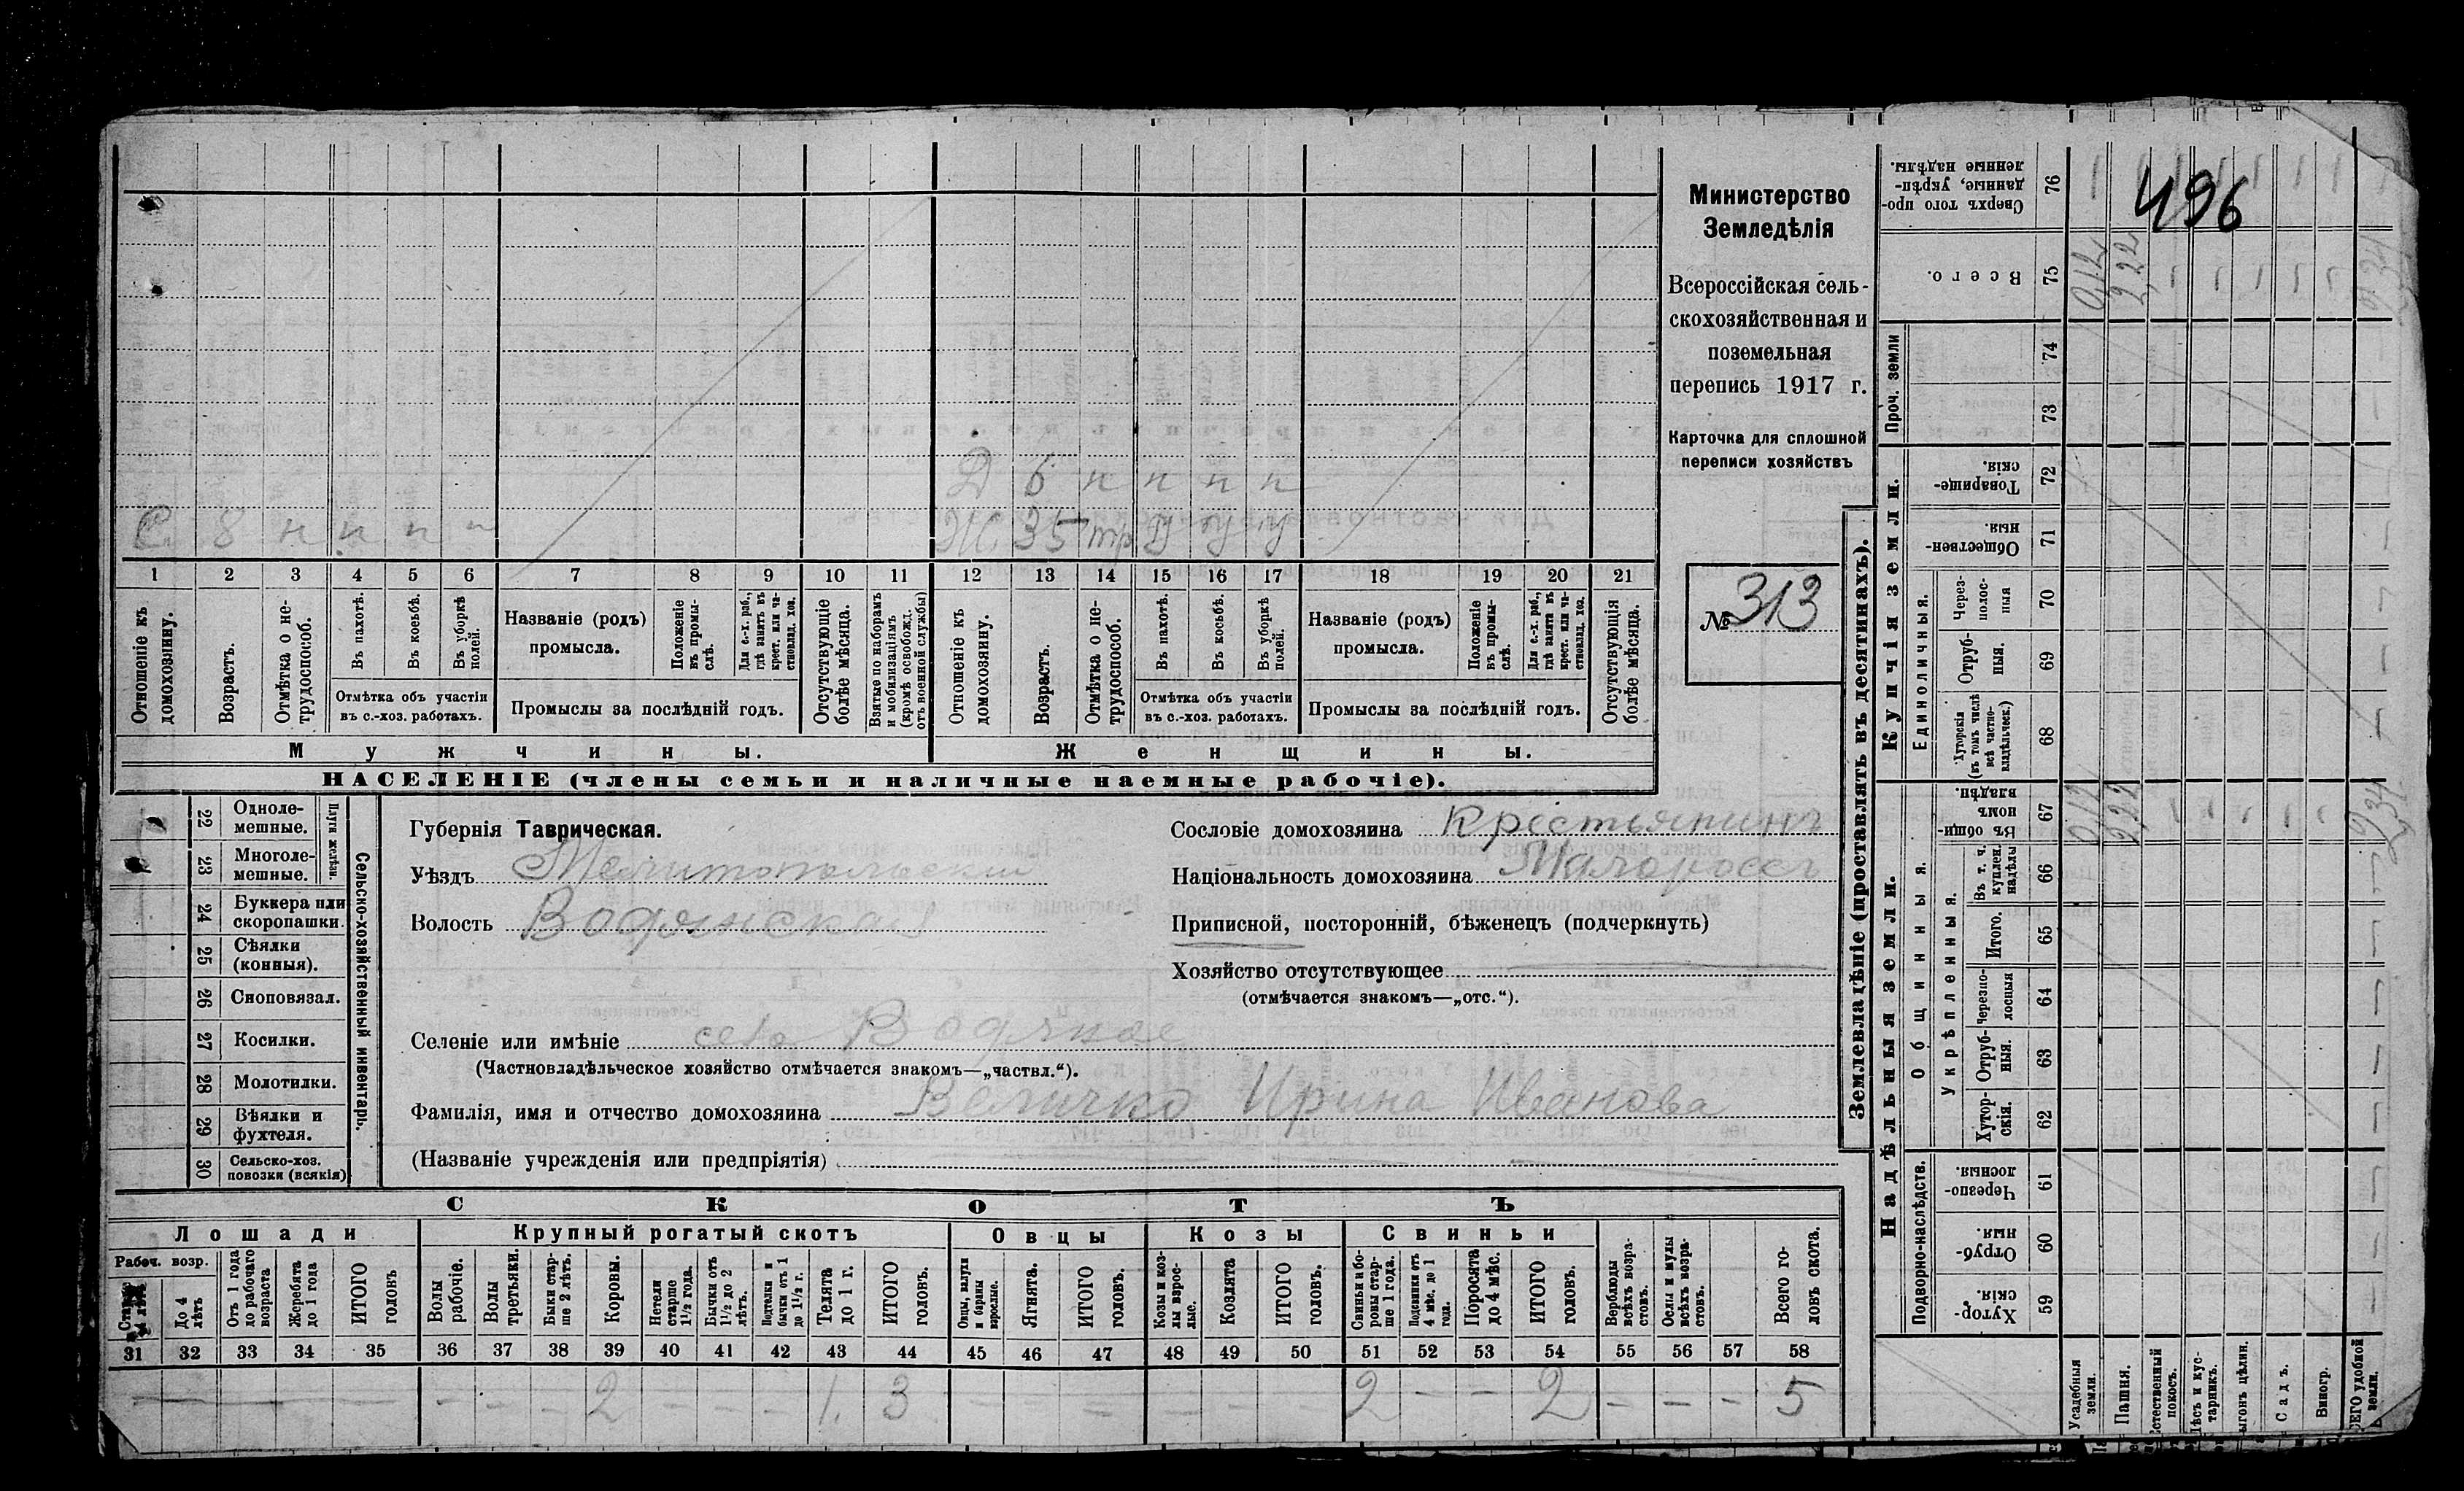 Д 6 п п п п
С 8 п п п п
Ж. 35 тр У У У
1 2 3 4 5 6 7 8 9 10 11 12 13 14 15 16 17 18 19 20 21
Отношеніе къ домохозяину.
Возрастъ.
Отмѣтка о не-трудоспособ.
Въ пахотѣ.
Въ косьбѣ.
Въ уборкѣ полей.
Отмѣтка объ участіи
въ с.-хоз. работахъ.
Названіе (родъ)
промысла.
Положеніе въ промы-слѣ.
Для с.-х. раб., гдѣ занятъ въ крест. или ча-стновлад. хоз.
Промыслы за послѣдній годъ.
Отсутствующіе болѣе мѣсяца.
Взятые по наборамъ и мобилизаціямъ (кромѣ освобожд. отъ военной службы)
Отношеніе къ домохозяину.
Возрастъ.
Отмѣтка о не-трудоспособ.
Въ пахотѣ.
Въ косьбѣ.
Въ уборкѣ полей.
Отмѣтка объ участіи
въ с.-хоз. работахъ.
Названіе (родъ)
промысла.
Положеніе въ промы-слѣ.
Для с.-х. раб., гдѣ занята въ крест. или ча-стновлад. хоз.
Промыслы за послѣдній годъ.
Отсутствующія болѣе мѣсяца.
Мужчины.
Женщины.
НАСЕЛЕНІЕ (члены семьи и наличные наемные рабочіе).
Министерство
Земледѣлія
Всероссійская сель-
скохозяйственная и
поземельная
перепись 1917 г.
Карточка для сплошной
переписи хозяйствъ
№ 313
22 Одноле-мешные.
23 Многоле-мешные.
Плуги желѣзн.
24 Буккера или скоропашки.
25 Сѣялки (конныя).
26 Сноповязал.
27 Косилки.
28 Молотилки.
29 Вѣялки и фухтеля.
30 Сельско-хоз. повозки (всякія)
Сельско-хозяйственный инвентарь.
Губернія Таврическая.
Уѣздъ Мелитопольскій
Волость Водянская
Сословіе домохозяина Крестьянинъ
Національность домохозяина Малороссъ
Приписной, посторонній, бѣженецъ (подчеркнуть)
Хозяйство отсутствующее
(отмѣчается знакомъ—„отс.“).
Селеніе или имѣніе село Водяное
(Частновладѣльческое хозяйство отмѣчается знакомъ—„частвл.“).
Фамилія, имя и отчество домохозяина Величко Ирина Иванова
(Названіе учрежденія или предпріятія)
СКОТЪ
Лошади
Крупный рогатый скотъ
Овцы
Козы
Свиньи
Рабоч. возр.
До 4 лѣтъ
Отъ 1 года до рабочаго возраста
Жеребята до 1 года
ИТОГО головъ
Волы рабочіе.
Волы третьяки.
Быки стар-ше 2 лѣтъ.
Коровы.
Нетели старше 1½ года.
Бычки отъ 1½ до 2 лѣтъ.
Подтелки и бычки отъ 1 до 1½ г.
Телята до 1 г.
ИТОГО головъ.
Овцы, валухи и бараны взрослые.
Ягнята.
ИТОГО головъ.
Козы и коз-лы взрос-лые.
Козлята
ИТОГО головъ.
Свиньи и бо-ровы стар-ше 1 года.
Подсвинки отъ 4 мѣс. до 1 года.
Поросята до 4 мѣс.
ИТОГО головъ.
Верблюды всѣхъ возра-стовъ.
Ослы и мулы всѣхъ возра-стовъ.
Всего го-ловъ скота.
31 32 33 34 35 36 37 38 39 40 41 42 43 44 45 46 47 48 49 50 51 52 53 54 55 56 57 58
— — — — — - - - 2 - - - 1. 3 — — — — — — 2 — — 2 — — - 5
Землевладѣніе (проставлять въ десятинахъ).
496
Сверхъ того про-данные, укрѣп-ленные надѣлы. 76
Всего. 75 0,12 2,22
Проч. земли 74 73
Купчія земли.
Товарище-скія. 72
Обществен-ныя. 71
Единоличныя.
Через-полос-ныя 70
Отруб-ныя. 69
Хуторскія (въ томъ числѣ всѣ частно-владѣльческ.) 68
Надѣльныя земли.
Общинныя.
Въ общи-номъ владѣн. 67 0,12 2,22
Укрѣпленныя.
Въ т. ч. куплен. надѣлы 66
Итого. 65
Черезпо-лосныя 64
Отруб-ныя. 63
Хутор-скія. 62
Подворно-наслѣдств.
Черезпо-лосныя 61
Отруб-ныя. 60
Хутор-скія. 59
Усадебныя земли.
Пашня.
Естественный покосъ.
Лѣсъ и кус-тарникъ.
Выгонъ цѣлин.
Садъ.
Виногр.
ВСЕГО удобной земли.